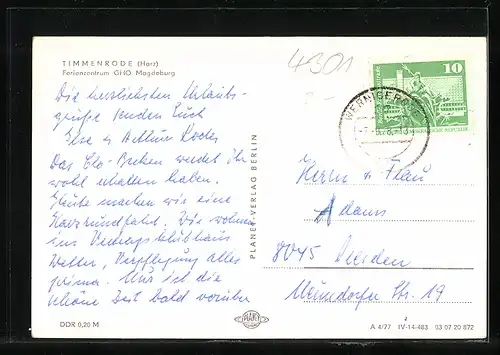 TIMMENRODE (Harz)
Feriencentrum GHO Magdeburg
4301
10
WERNIGERODE
Die herzlichsten Urlaubs-
grüße senden Euch
Ilse u. Arthur
Das Clo-Becken werdet ihr
wohl erhalten haben.
Heute machen wir eine
Harzrundfahrt. Wir wohnen
ins Vertragsklubhaus
Wetter, Verpflegung alles
prima. Nur ist die
schöne Zeit bald vorüber
PLANER-VERLAG BERLIN
Herrn u Frau
Adams
8045 Dresden
Str. 19
DDR 0,20 M
A 4/77 IV-14-483 03 07 20 872